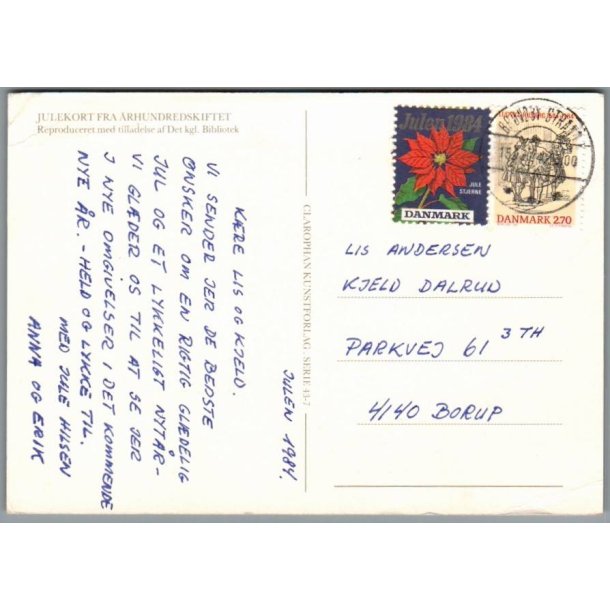 JULEKORT FRA ÅRHUNDREDSKIFTET
Reproduceret med tilladelse af Det kgl. Bibliotek
JULEN 1984.
KÆRE LIS OG KJELD.
VI SENDER JER DE BEDSTE
ØNSKER OM EN RIGTIG GLÆDELIG
JUL OG ET LYKKELIGT NYTÅR-
VI GLÆDER OS TIL AT SE JER
I NYE OMGIVELSER I DET KOMMENDE
NYE ÅR. - HELD OG LYKKE TIL.
MED JULE HILSEN
ANNA OG ERIK
CLAROPHAN KUNSTFORLAG SERIE 43-7
Julen 1984
JULE
STJERNE
DANMARK
DANMARK 2.70
LIS ANDERSEN
KJELD DALRUD
PARKVEJ 61 3 TH
4140 BORUP